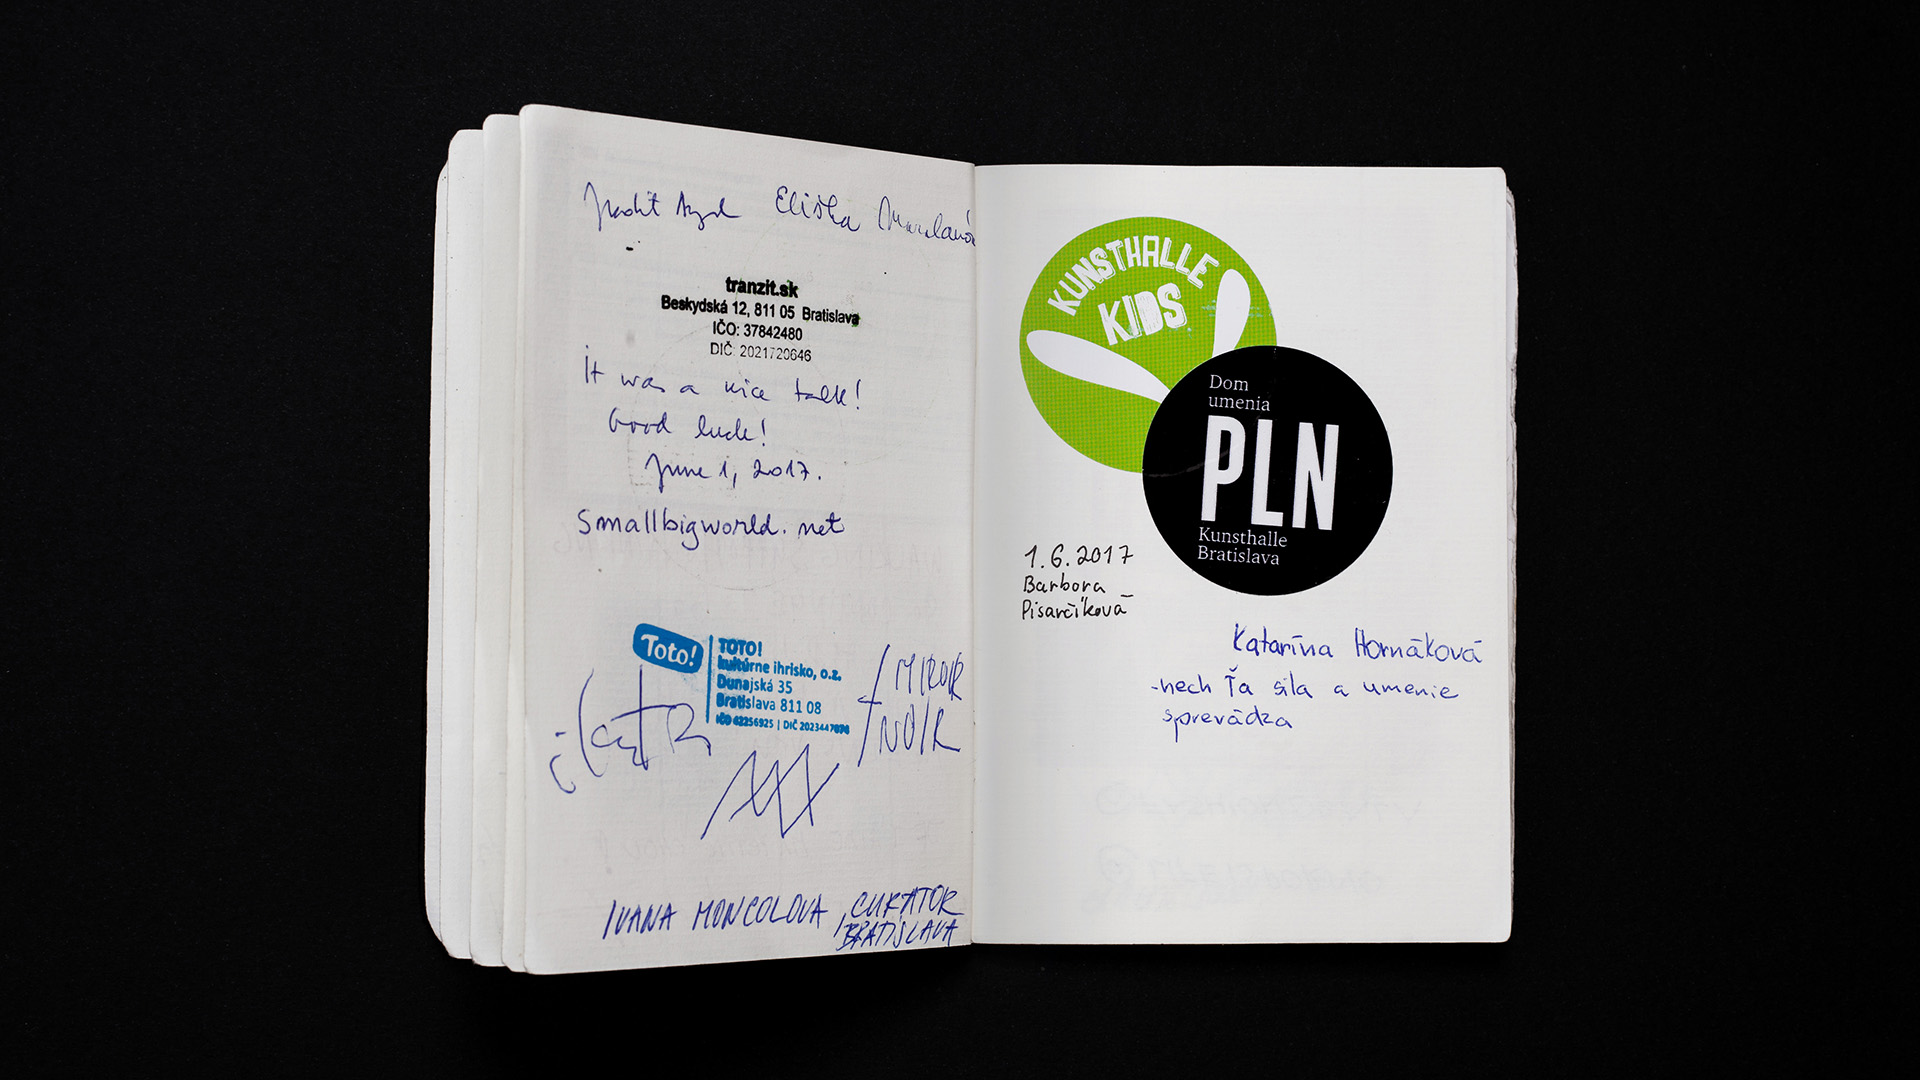 Judit Eliška
tranzit.sk
Beskydská 12, 811 05 Bratislava
IČO: 37842480
DIČ: 2021720646
It was a nice talk!
Good luck!
June 1, 2017.
smallbigworld.net
Toto!
TOTO!
kultúrne ihrisko, o.z.
Dunajská 35
Bratislava 811 08
IČO 42256925 | DIČ 2023447076
MIROIR
NOIR
IVANA MONCOLOVA, CURATOR
BRATISLAVA
KUNSTHALLE
KIDS
Dom
umenia
PLN
Kunsthalle
Bratislava
1.6.2017
Barbora
Pisarčíková
Katarína Hornáková
-nech Ťa sila a umenie
sprevádza